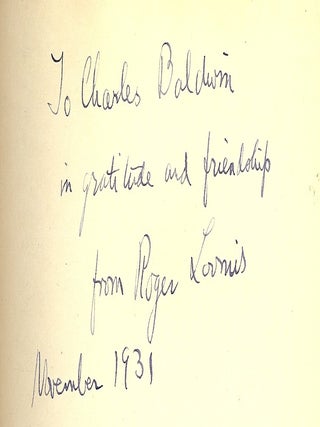 To Charles Baldwin
in gratitude and friendship
from Roger Loomis
November 1931